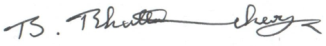 B. Bhattacharya